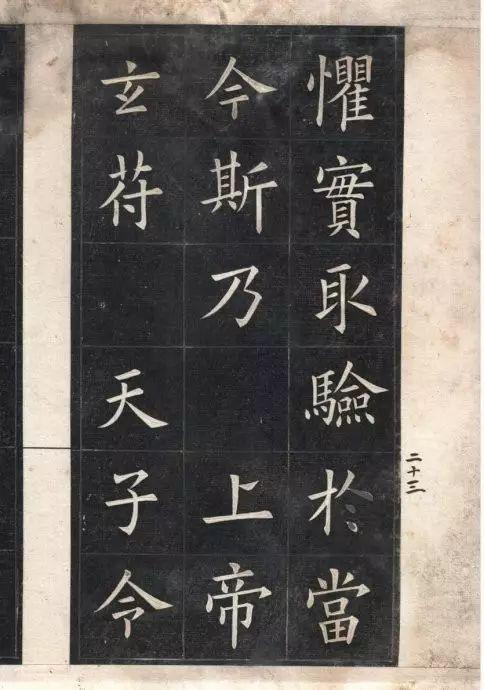 懼實取驗於當
今斯乃上帝
玄苻天子令
二十三